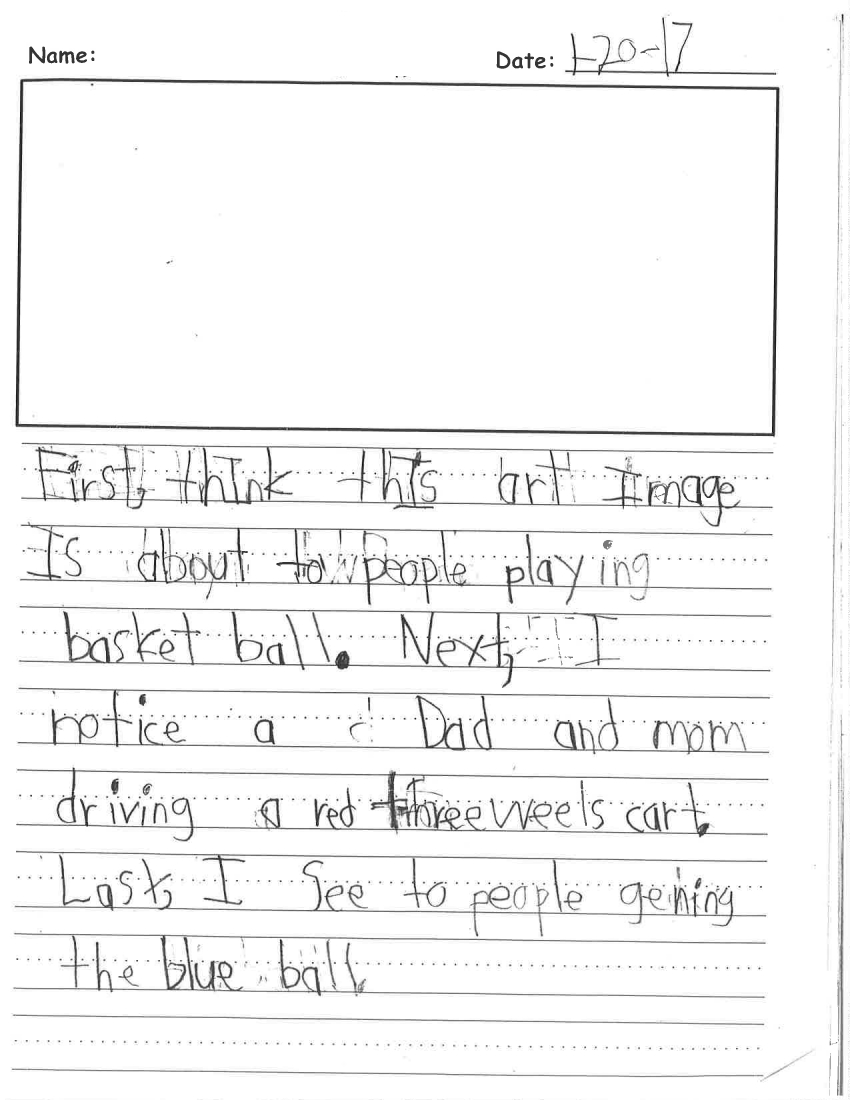 Name:
Date: 1-20-17
First, thInk thIs art Image
Is about to people playing
basket ball. Next, I
notice a Dad and mom
driving a red threeweels cart.
Last, I See to people
the blue ball.